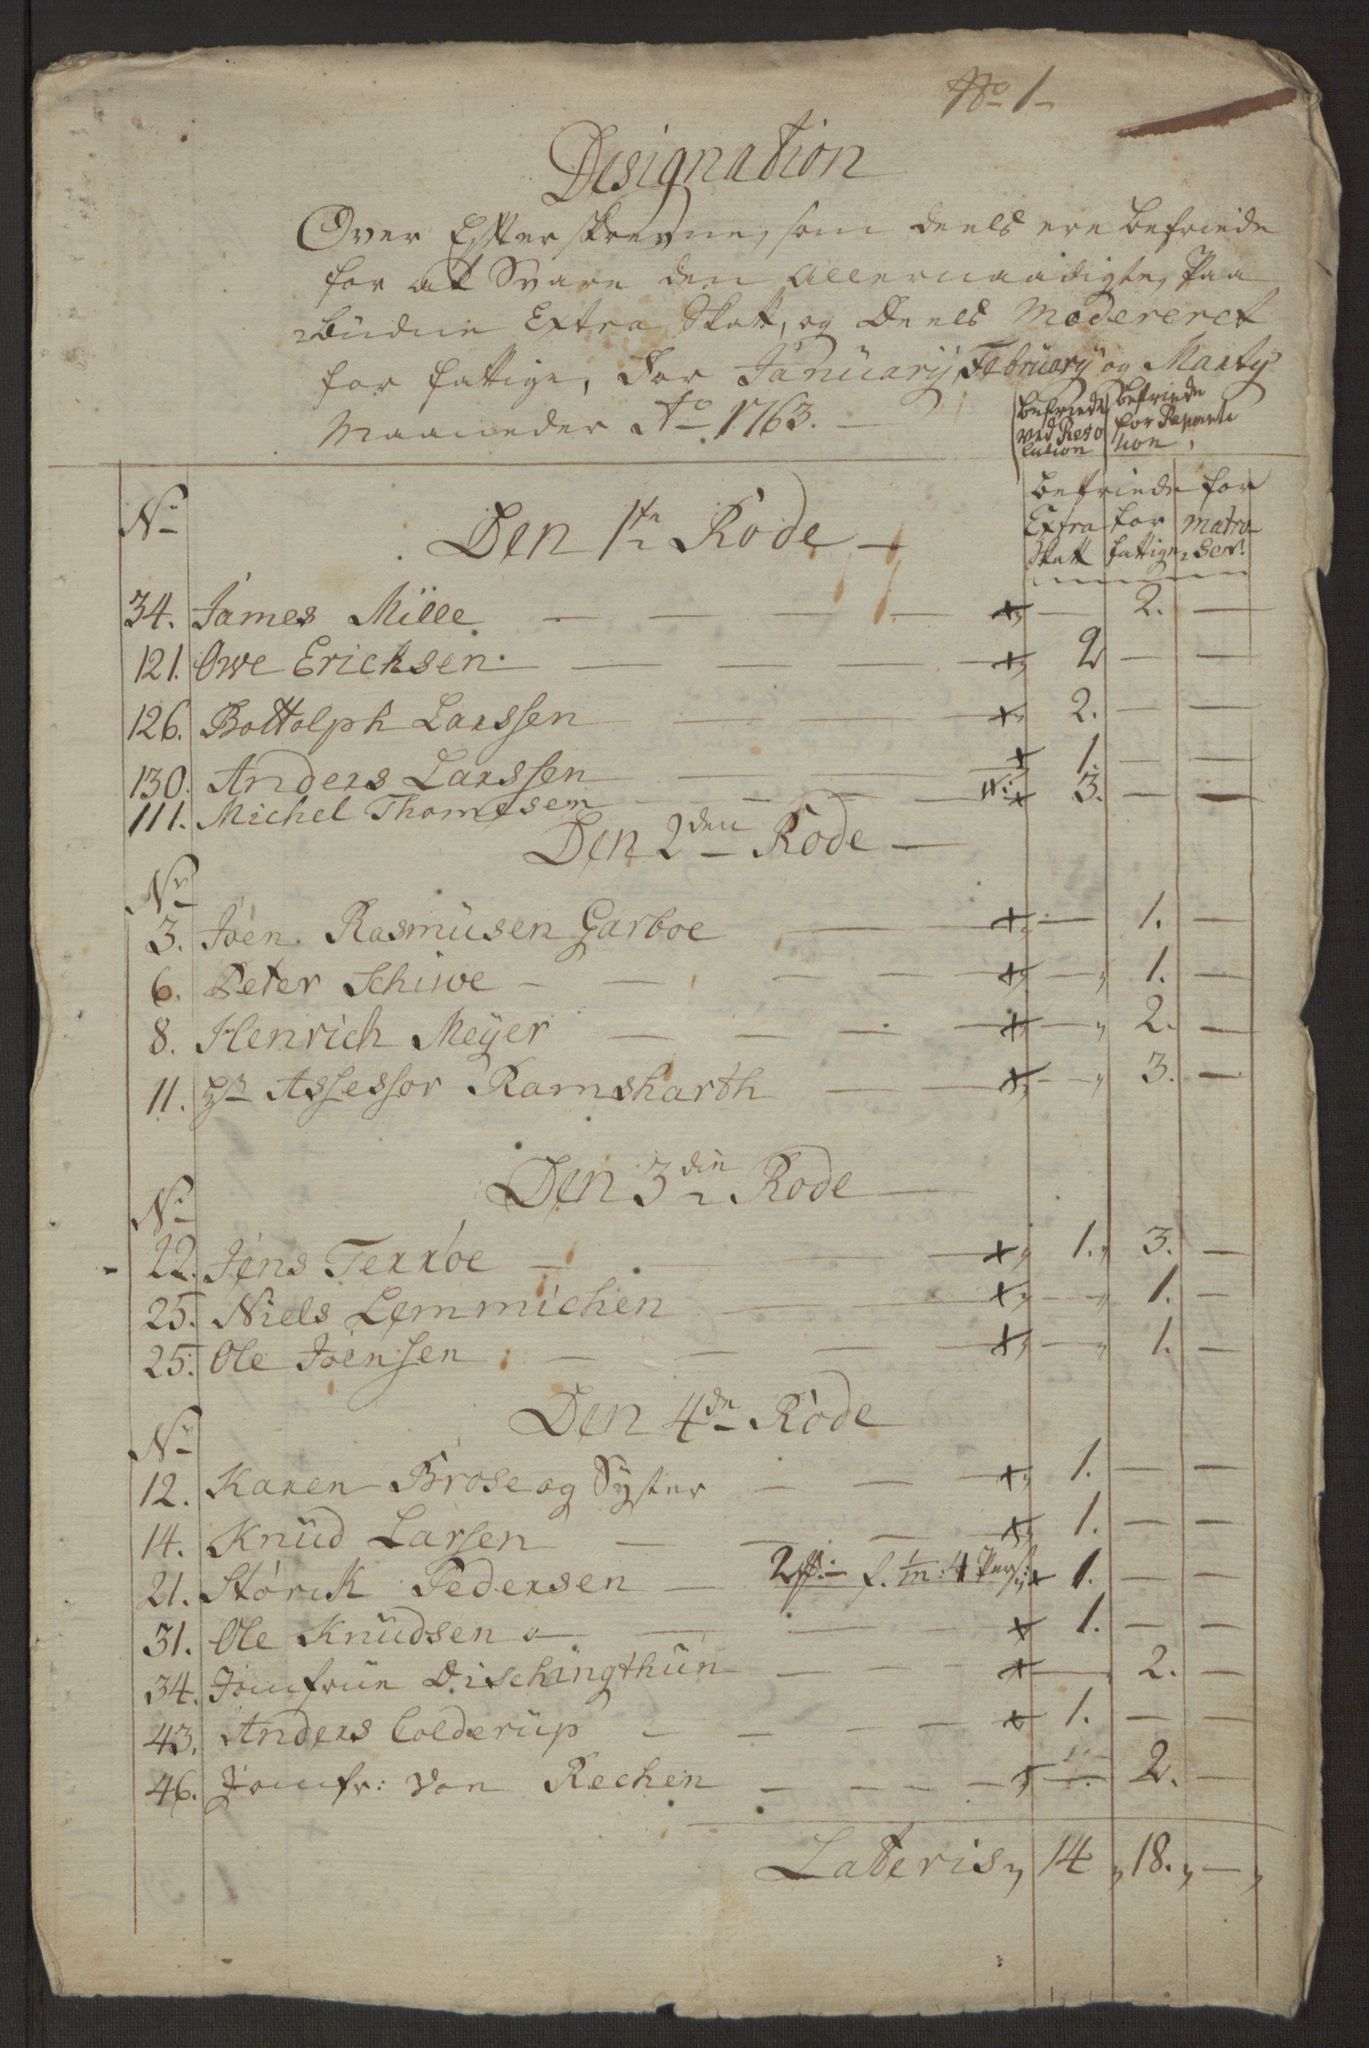 No 1
Designation
Over Efterskrevne, som deels ere befriede
for at Svare den Allernaadigste, Paa
budne Extra Skatt, og Deels Modereret
for fattige, For Januarij, February og Marty
Maaneder Ao 1763.
befriede befriede
ved Reso for
lution tion
befriede for
Extra for Matro
Skatt fattige ser
No
Den 1te Rode
34. James Mille 2.
121. Owe Ericksen 2
126. Bottolph Larssen 2.
130. Anders Larssen 1.
111. Michel Thomesen 3.
Den 2den Rode
Nr
3. Joen Rasmusen Garboe 1.
6. Peter Schiwe 1.
8. Henrich Meyer 2.
11. Hr Assessor Ramsharth 3.
Den 3die Rode
Nr
22. Jens Terrøe 1. 3.
25. Niels Lemmichen 1.
25. Ole Joensen 1.
Den 4de Rode
Nr
12. Karen Brose og Syster 1.
14. Knud Larsen 1.
21. Størck Pedersen f. 4 Pers: 1.
31. Ole Knudsen 1.
34. Jomfrue Dischingthun 2.
43. Anders Colderup 1.
46. Jomfr: von Rechen 2.
Lateris 14 18.